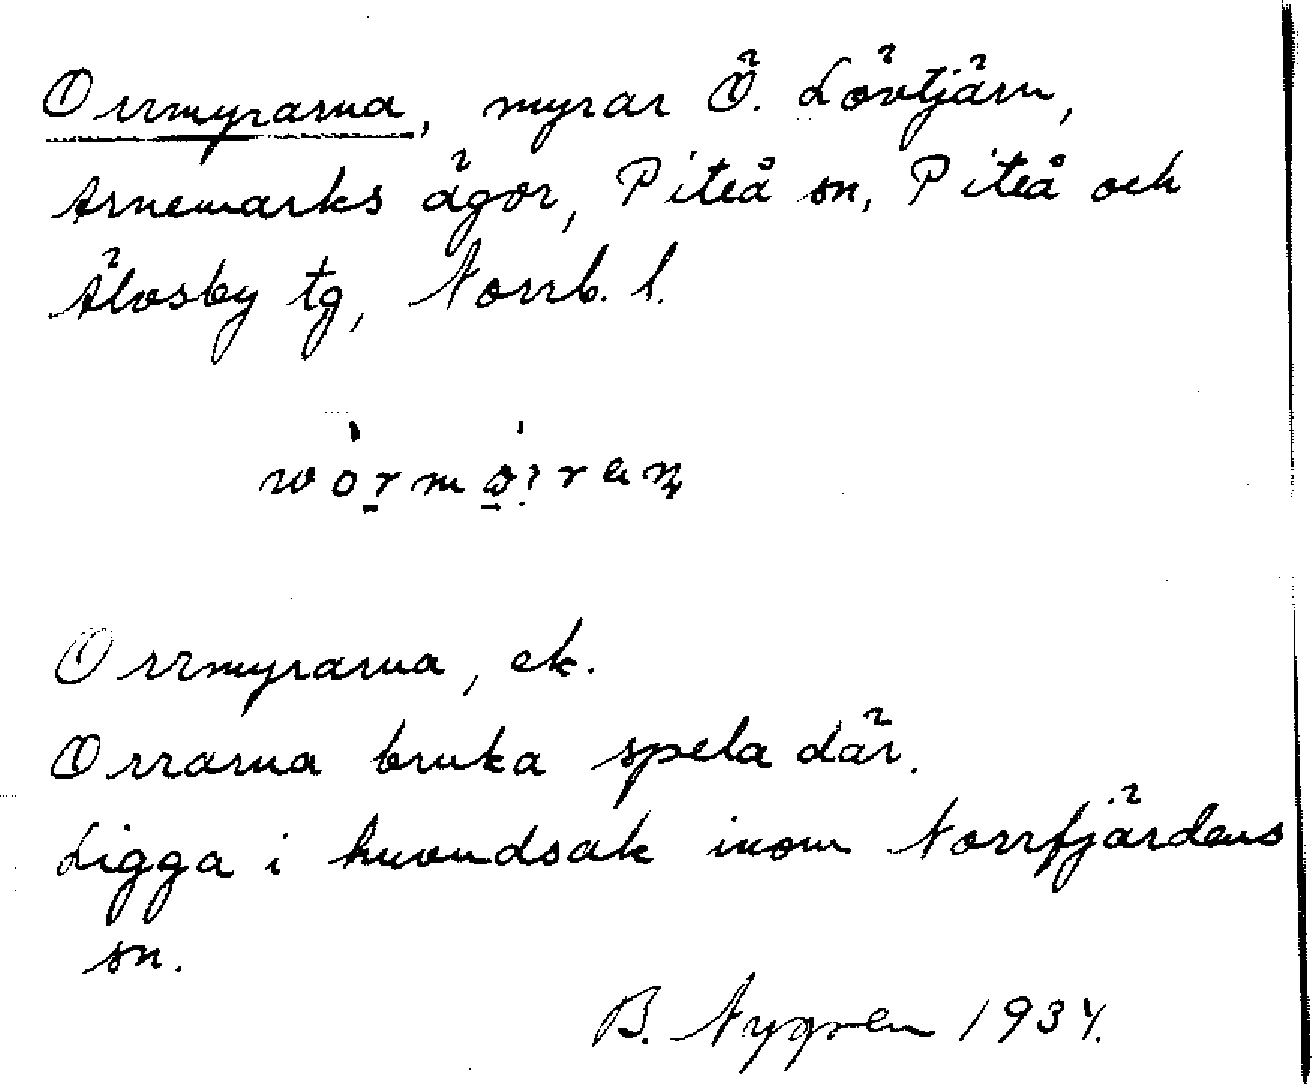 Orrmyrarna, myrar Ö. Lövtjärn,
Arnemarks ägor, Piteå sn, Piteå och
Älvsby tg, Norrb. l.
Orrmyrarna, ek.
Orrarna bruka spela där.
Ligga i huvudsak inom Norrfjärdens
sn.
B. Nygren 1934.